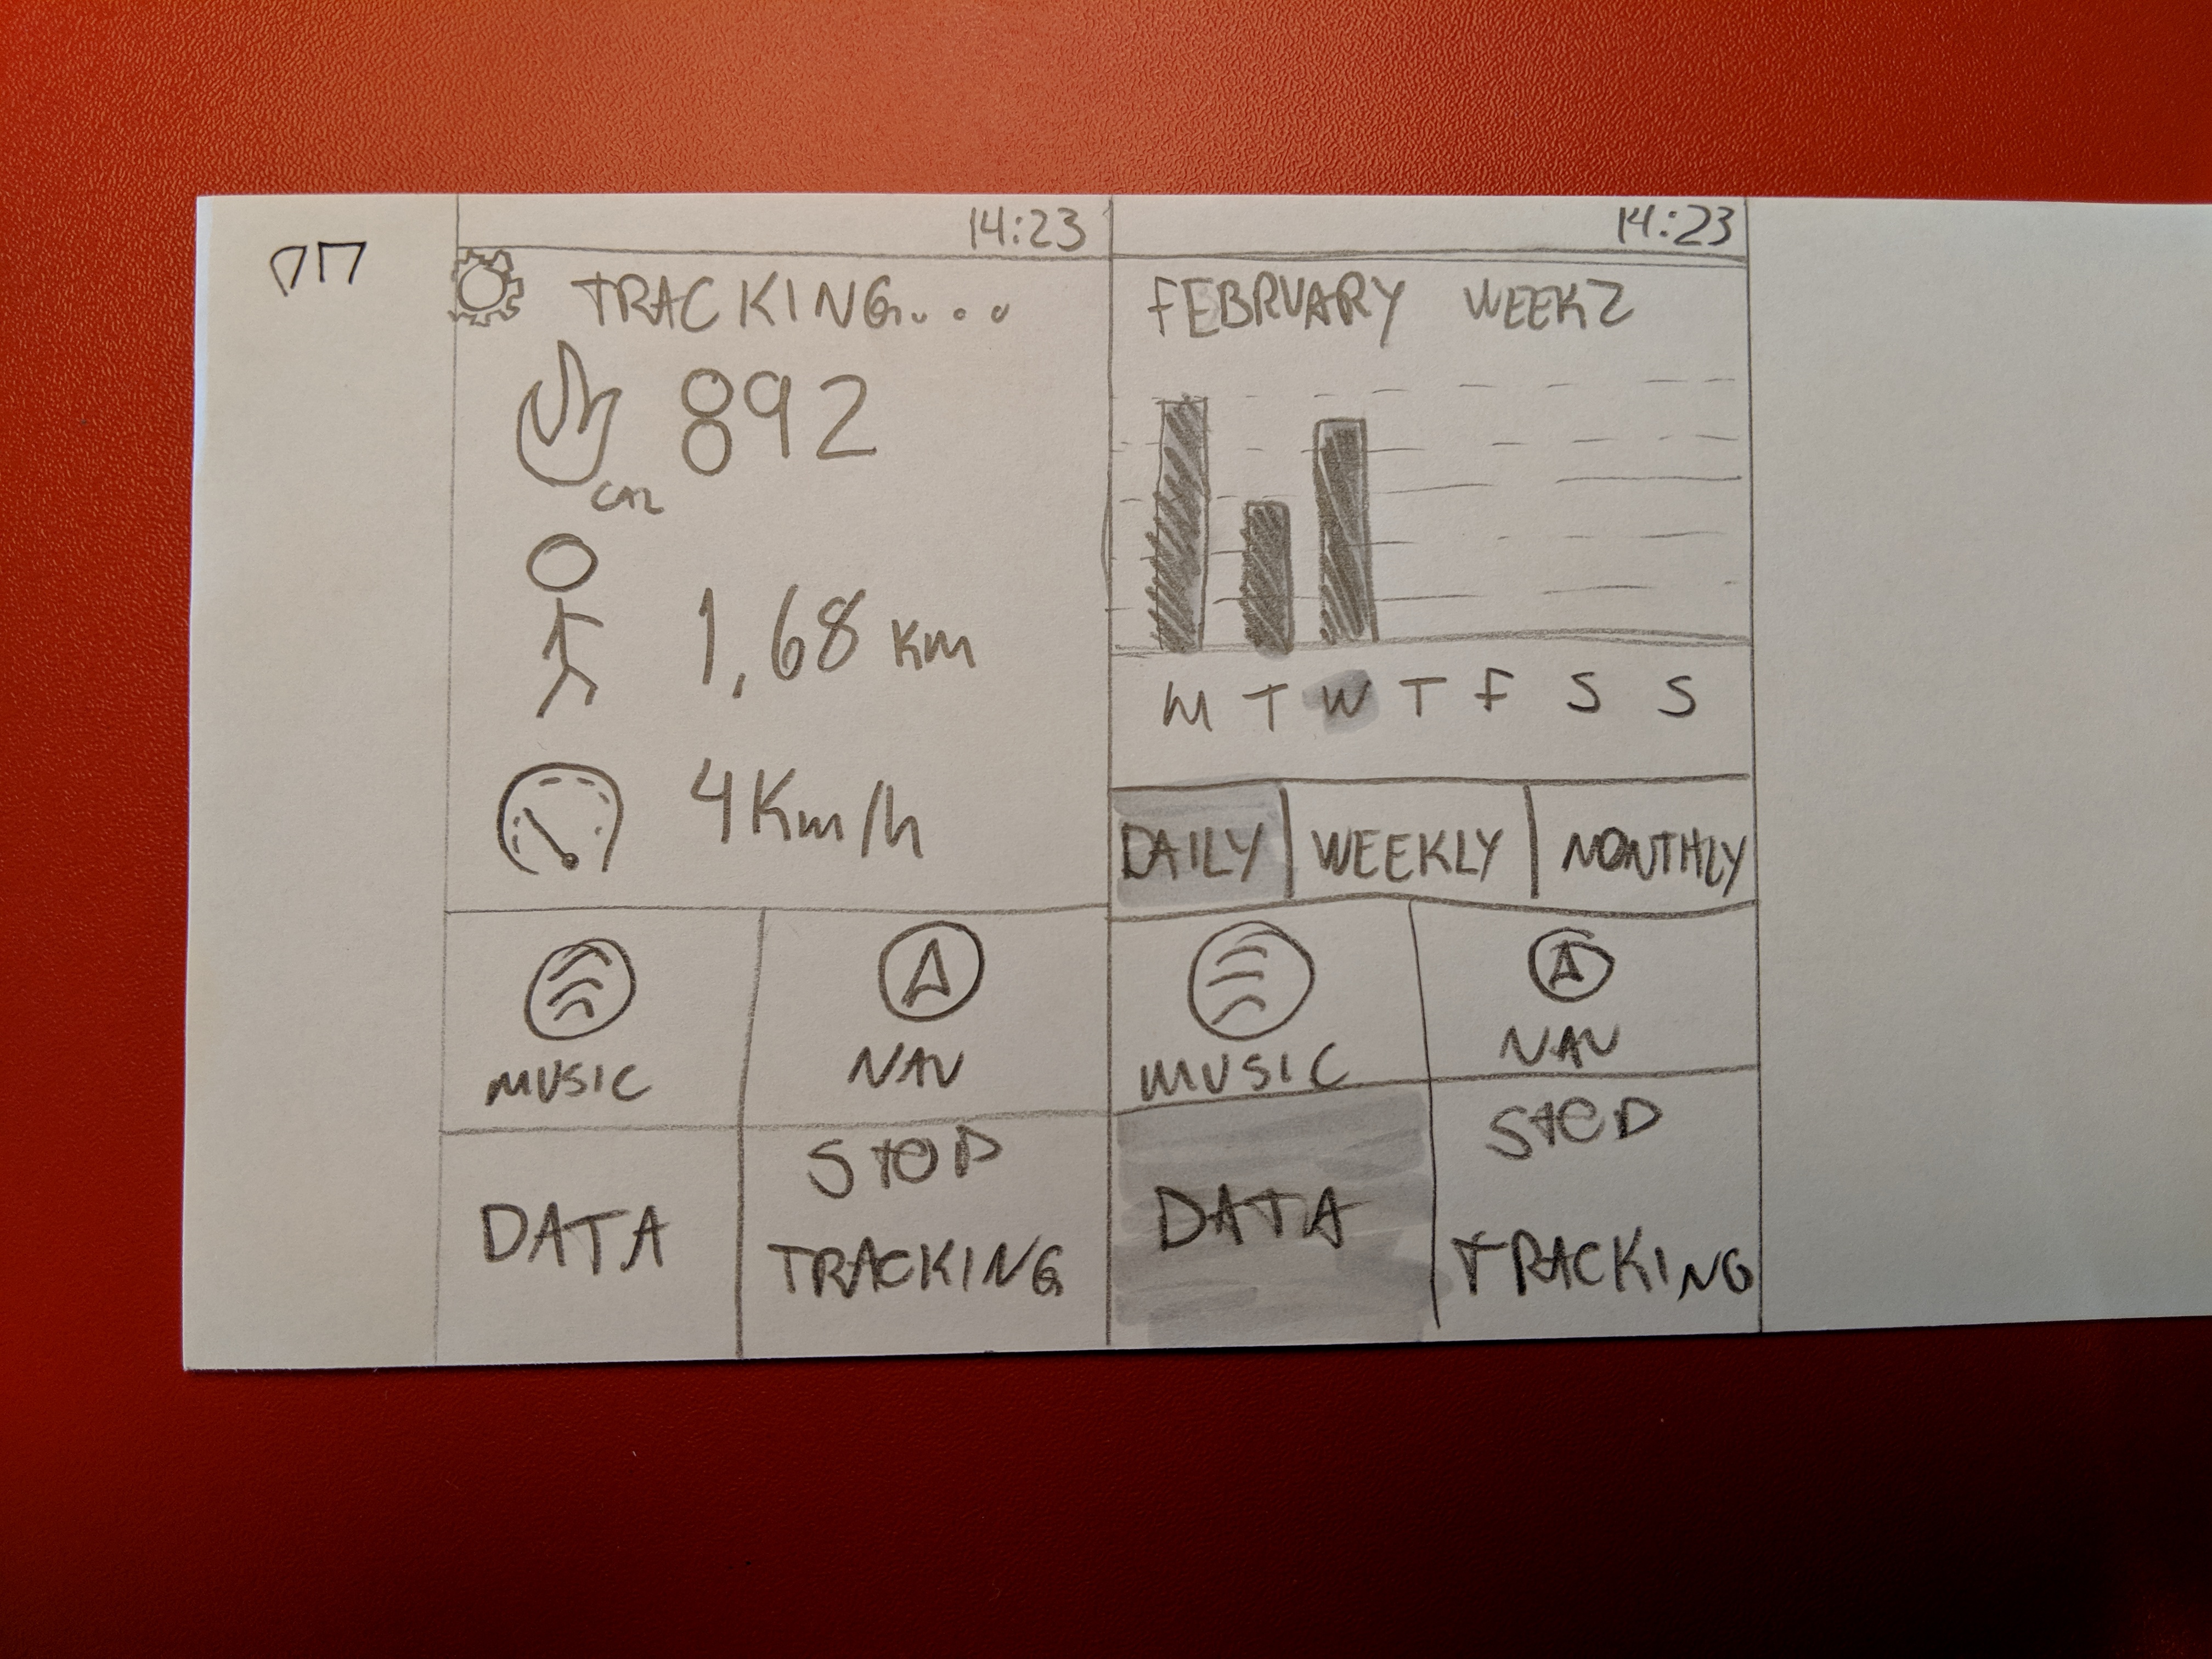 14:23
TRACKING...
892
CAL
1,68 Km
4Km/h
MUSIC
NAV
DATA
STOP
TRACKING
14:23
FEBRUARY WEEK 2
M T W T F S S
DAILY WEEKLY MONTHLY
MUSIC
NAV
DATA
STOP
TRACKING